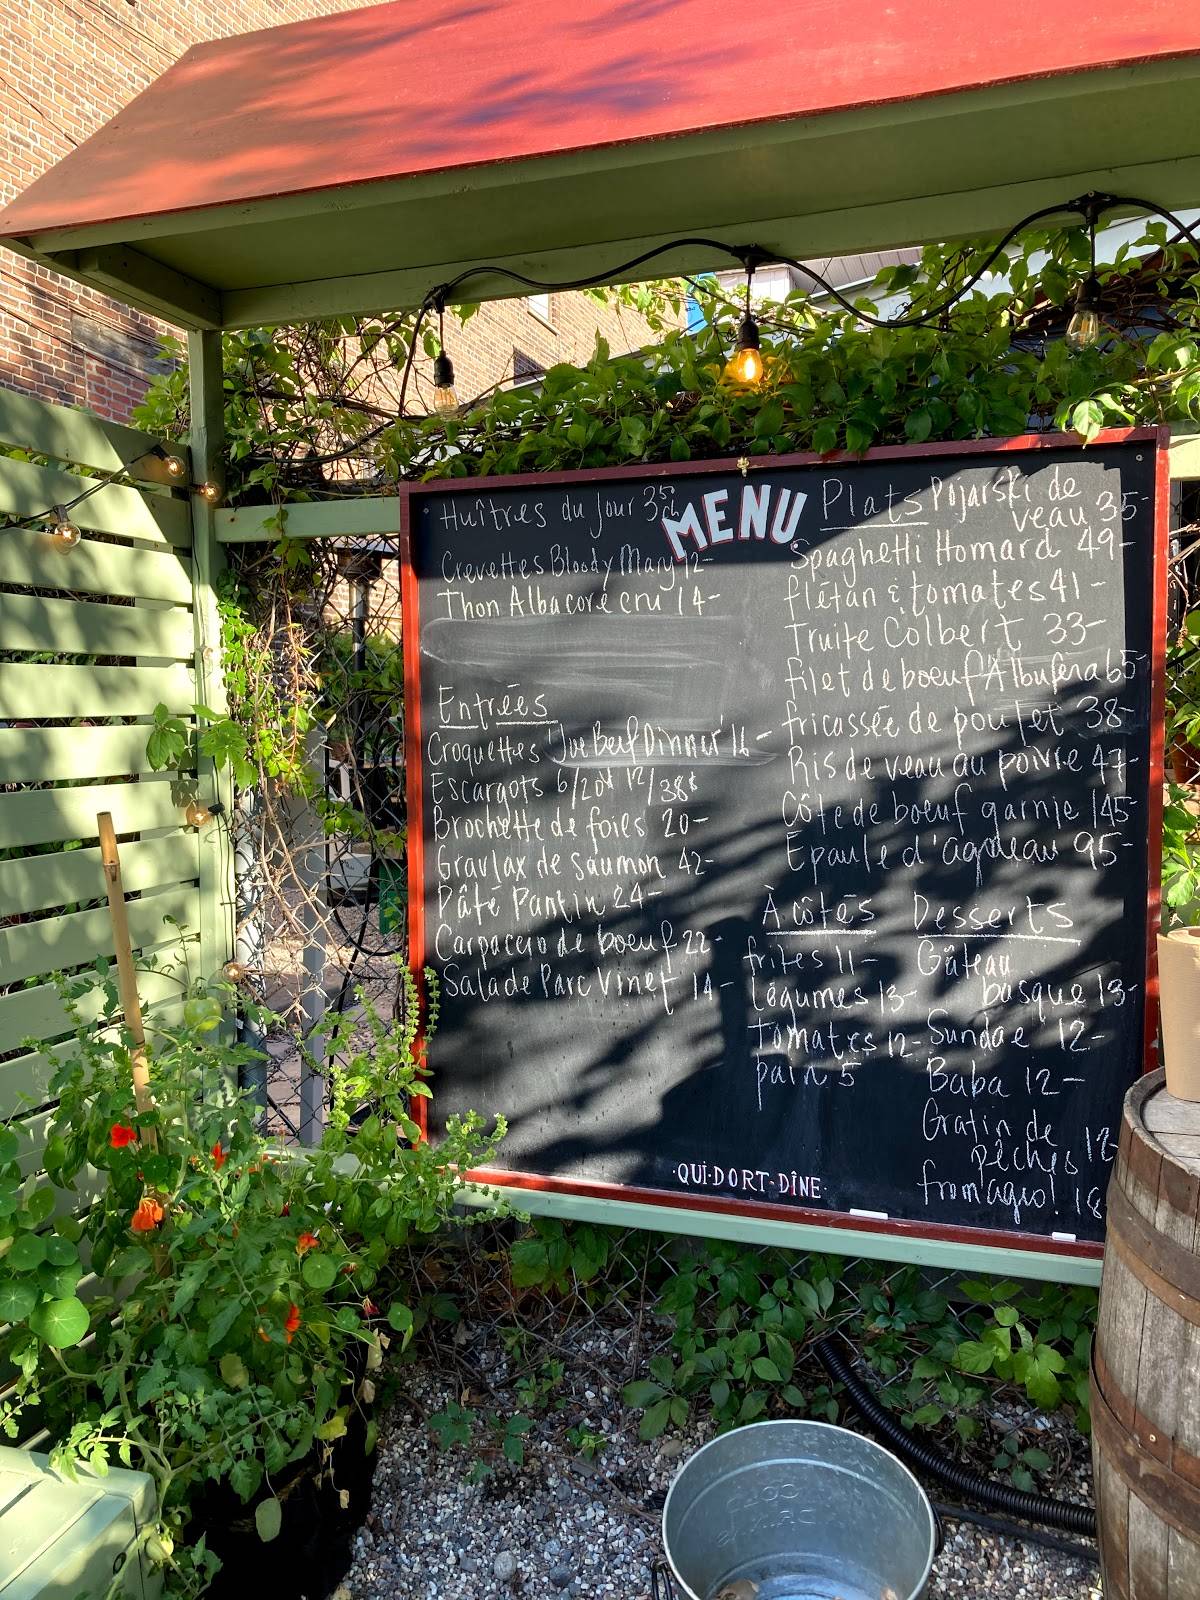 MENU
Huîtres du Jour 3.50 ch
Crevettes Bloody Mary 12-
Thon Albacore cru 14-
Entrées
Croquettes "Joe Beef Dinner" 16-
Escargots 6/20$ 12/38$
Brochette de foies 20-
Gravlax de saumon 42-
Pâté Pantin 24-
Carpaccio de boeuf 22-
Salade Parc Vinet 14-
Plats Pojarski de
veau 35-
Spaghetti Homard 49-
flétan & tomates 41-
Truite Colbert 33-
filet de boeuf "Albufera 65-
fricassée de poulet 38-
Ris de veau au poivre 47-
Côte de boeuf garnie 145-
Epaule d'agneau 95-
À côtés
frites 11-
Légumes 13-
Tomates 12-
pain 5
Desserts
Gâteau
basque 13-
Sundae 12-
Baba 12-
Gratin de
pêches 12-
fromages! 18
·QUI·DORT·DÎNE·